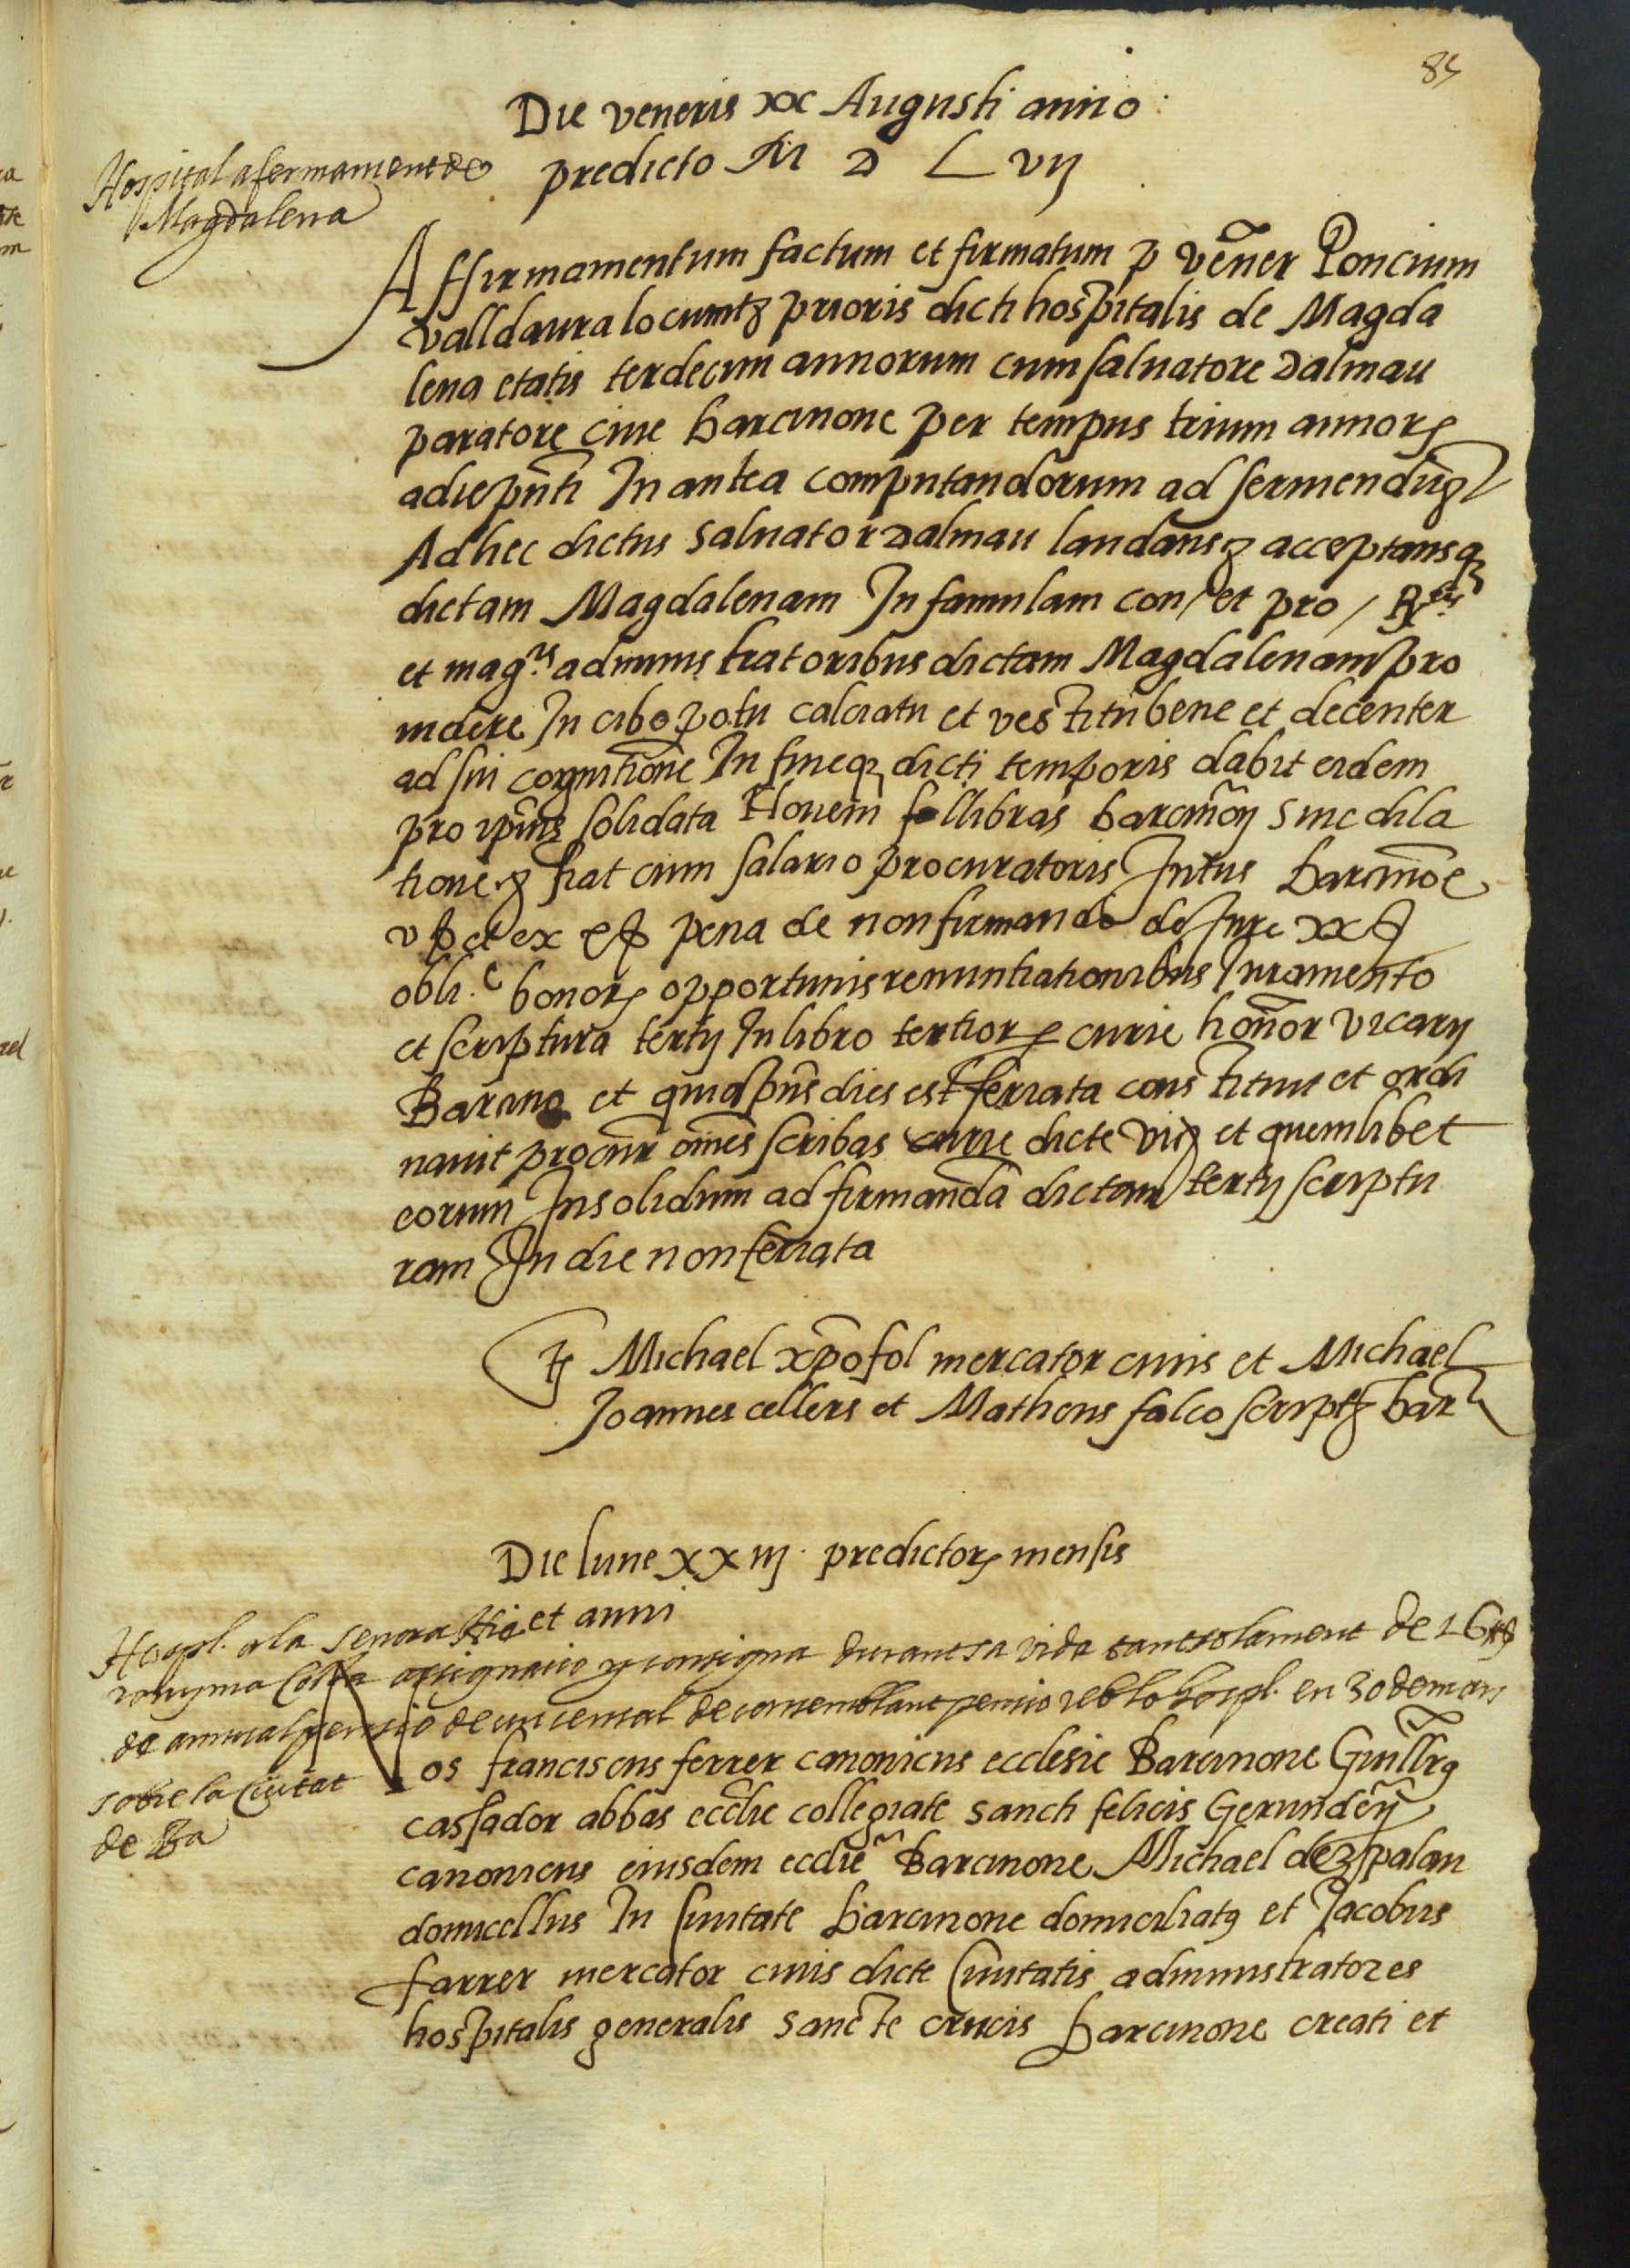 85
Die veneris xx Augusti anno
predicto M D L vij
Hospital afermament de
Magdalena
Affirmamentum factum et firmatum p vener Poncium
valldaura locumtz prioris dicti hospitalis de Magda
lena etatis terdecim annorum cum salvatore Dalmau
paratore cive barcinone per tempus trium annor
a die pnti In antea computandorum ad serviendum
Ad hec dictus salvator Dalmau laudans acceptansq
dictam Magdalenam In famulam con et pro / R
et magcis administratoribus dictam Magdalenam pro
videre In cibo potu calciatu et vestitu bene et decenter
ad sui cognitione In fineq dicti temporis dabit eidem
pro ipius solidata Novem libras barcinon sine dila
tione fiat cum salario procuratoris Intus barcinone
v et ex pena de non firmando de Jure xx
obli.e bonor opportunis renuntiationibus Juramento
et scriptura tertij In libro tertior curie honor vicarij
Barcino et quia pns dies est feriata constituit et ordi
navit procur omnes scribas curie dicte et quemlibet
eorum Insolidum ad firmanda dictam tertij scriptu
ram In die non feriata
ts Michael xpofol mercator civis et Michael
Joannes cellers et Matheus falco script bar
Die lune xxiij predictor mensis
et anni
Hospl. a la Senora
assignatio y consigna durant sa vida tant solament de
de annual pensio de un censal de consemblant pensio reb lo hospl. en 30 de mars
sobre la Ciutat
de Ba
Nos franciscus ferrer canonicus ecclesie Barcinone Guillrg
cassador abbas ecclie collegiate sancti felicis Gerunden
canonicus eiusdem ecclie Barcinone Michael dezpalau
domicellus In Civitate barcinone domiciliatg et Jacobus
farrer mercator civis dicte Civitatis administratores
hospitalis generalis sancte crucis barcinone creati et